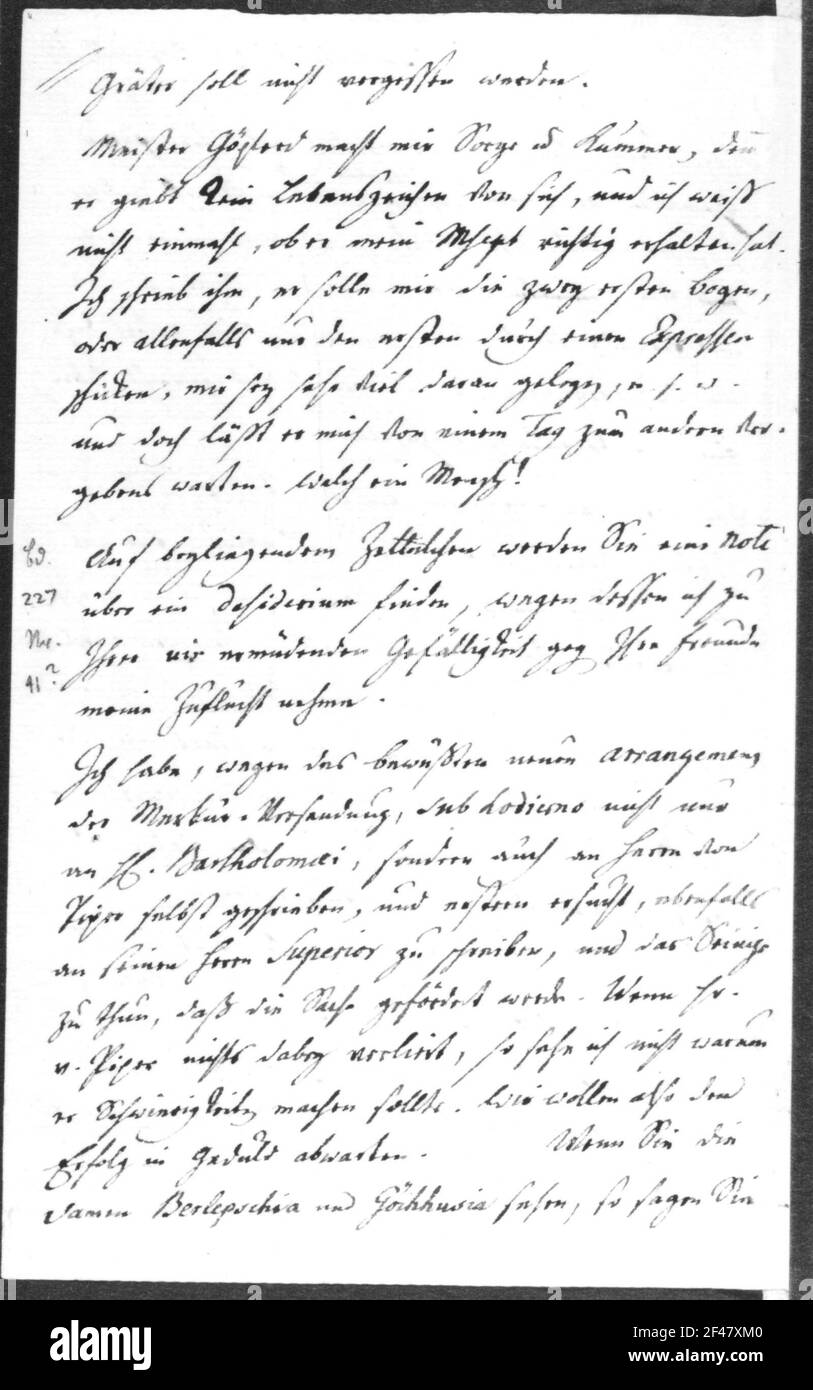 Gräter soll nicht vergessen werden.
Meister Göpferd macht mir Sorge u Kummer, denn
er giebt kein Lebenszeichen von sich, und ich weiß
nicht einmahl, ob er mein Mscpt richtig erhalten hat.
Ich schrieb ihm, er solle mir die zwey ersten Bogen,
oder allenfalls nur den ersten durch einen Expressen
schicken, mir sey sehr viel daran gelegen, u. s. w.
und doch läßt er mich von einem Tag zum andern ver-
gebens warten. Welch ein Mensch!
Auf beyliegendem Zettelchen werden Sie eine Note
über ein Desiderium finden, wegen dessen ich zu
Ihrer nie ermüdenden Gefälligkeit geg Ihre Freunde
meine Zuflucht nehme.
Bd.
227
Nr.
41?
Ich habe, wegen des bewußten neuen Arrangemens
der Merkur-Versendung, sub hodierno nicht nur
an H. Bartholomæi, sondern auch an Herrn von
Piper selbst geschrieben, und erstern ersucht, ebenfalls
an seinen Herrn Superior zu schreiben, und das Seinige
zu thun, daß die Sache gefördert werde. Wenn Hr.
v. Piper nichts dabey verliert, so sehe ich nicht warum
er Schwierigkeiten machen sollte. Wir wollen also den
Erfolg in Geduld abwarten. Wenn Sie die
Damen Berlepschia und Göchhusia sehen, so sagen Sie
alamy
Image ID: 2F47XM0
www.alamy.com